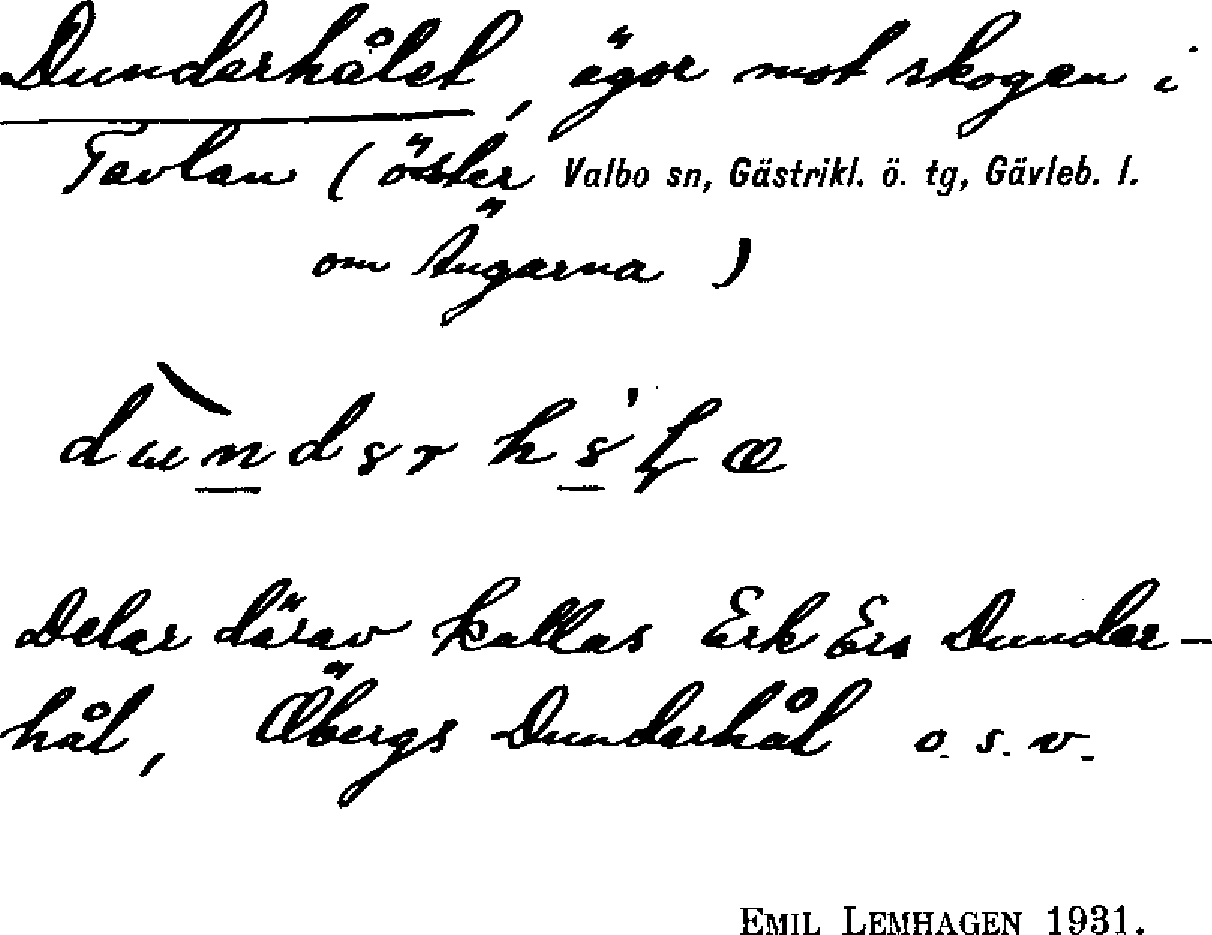 Dunderhålet, ägor mot skogen i
Tavlan (öster Valbo sn, Gästrikl. ö. tg, Gävleb. l.
om Ängarna)
Delar därav kallas Erk Ers Dunder-
hål, Öbergs Dunderhål o.s.v.
EMIL LEMHAGEN 1931.